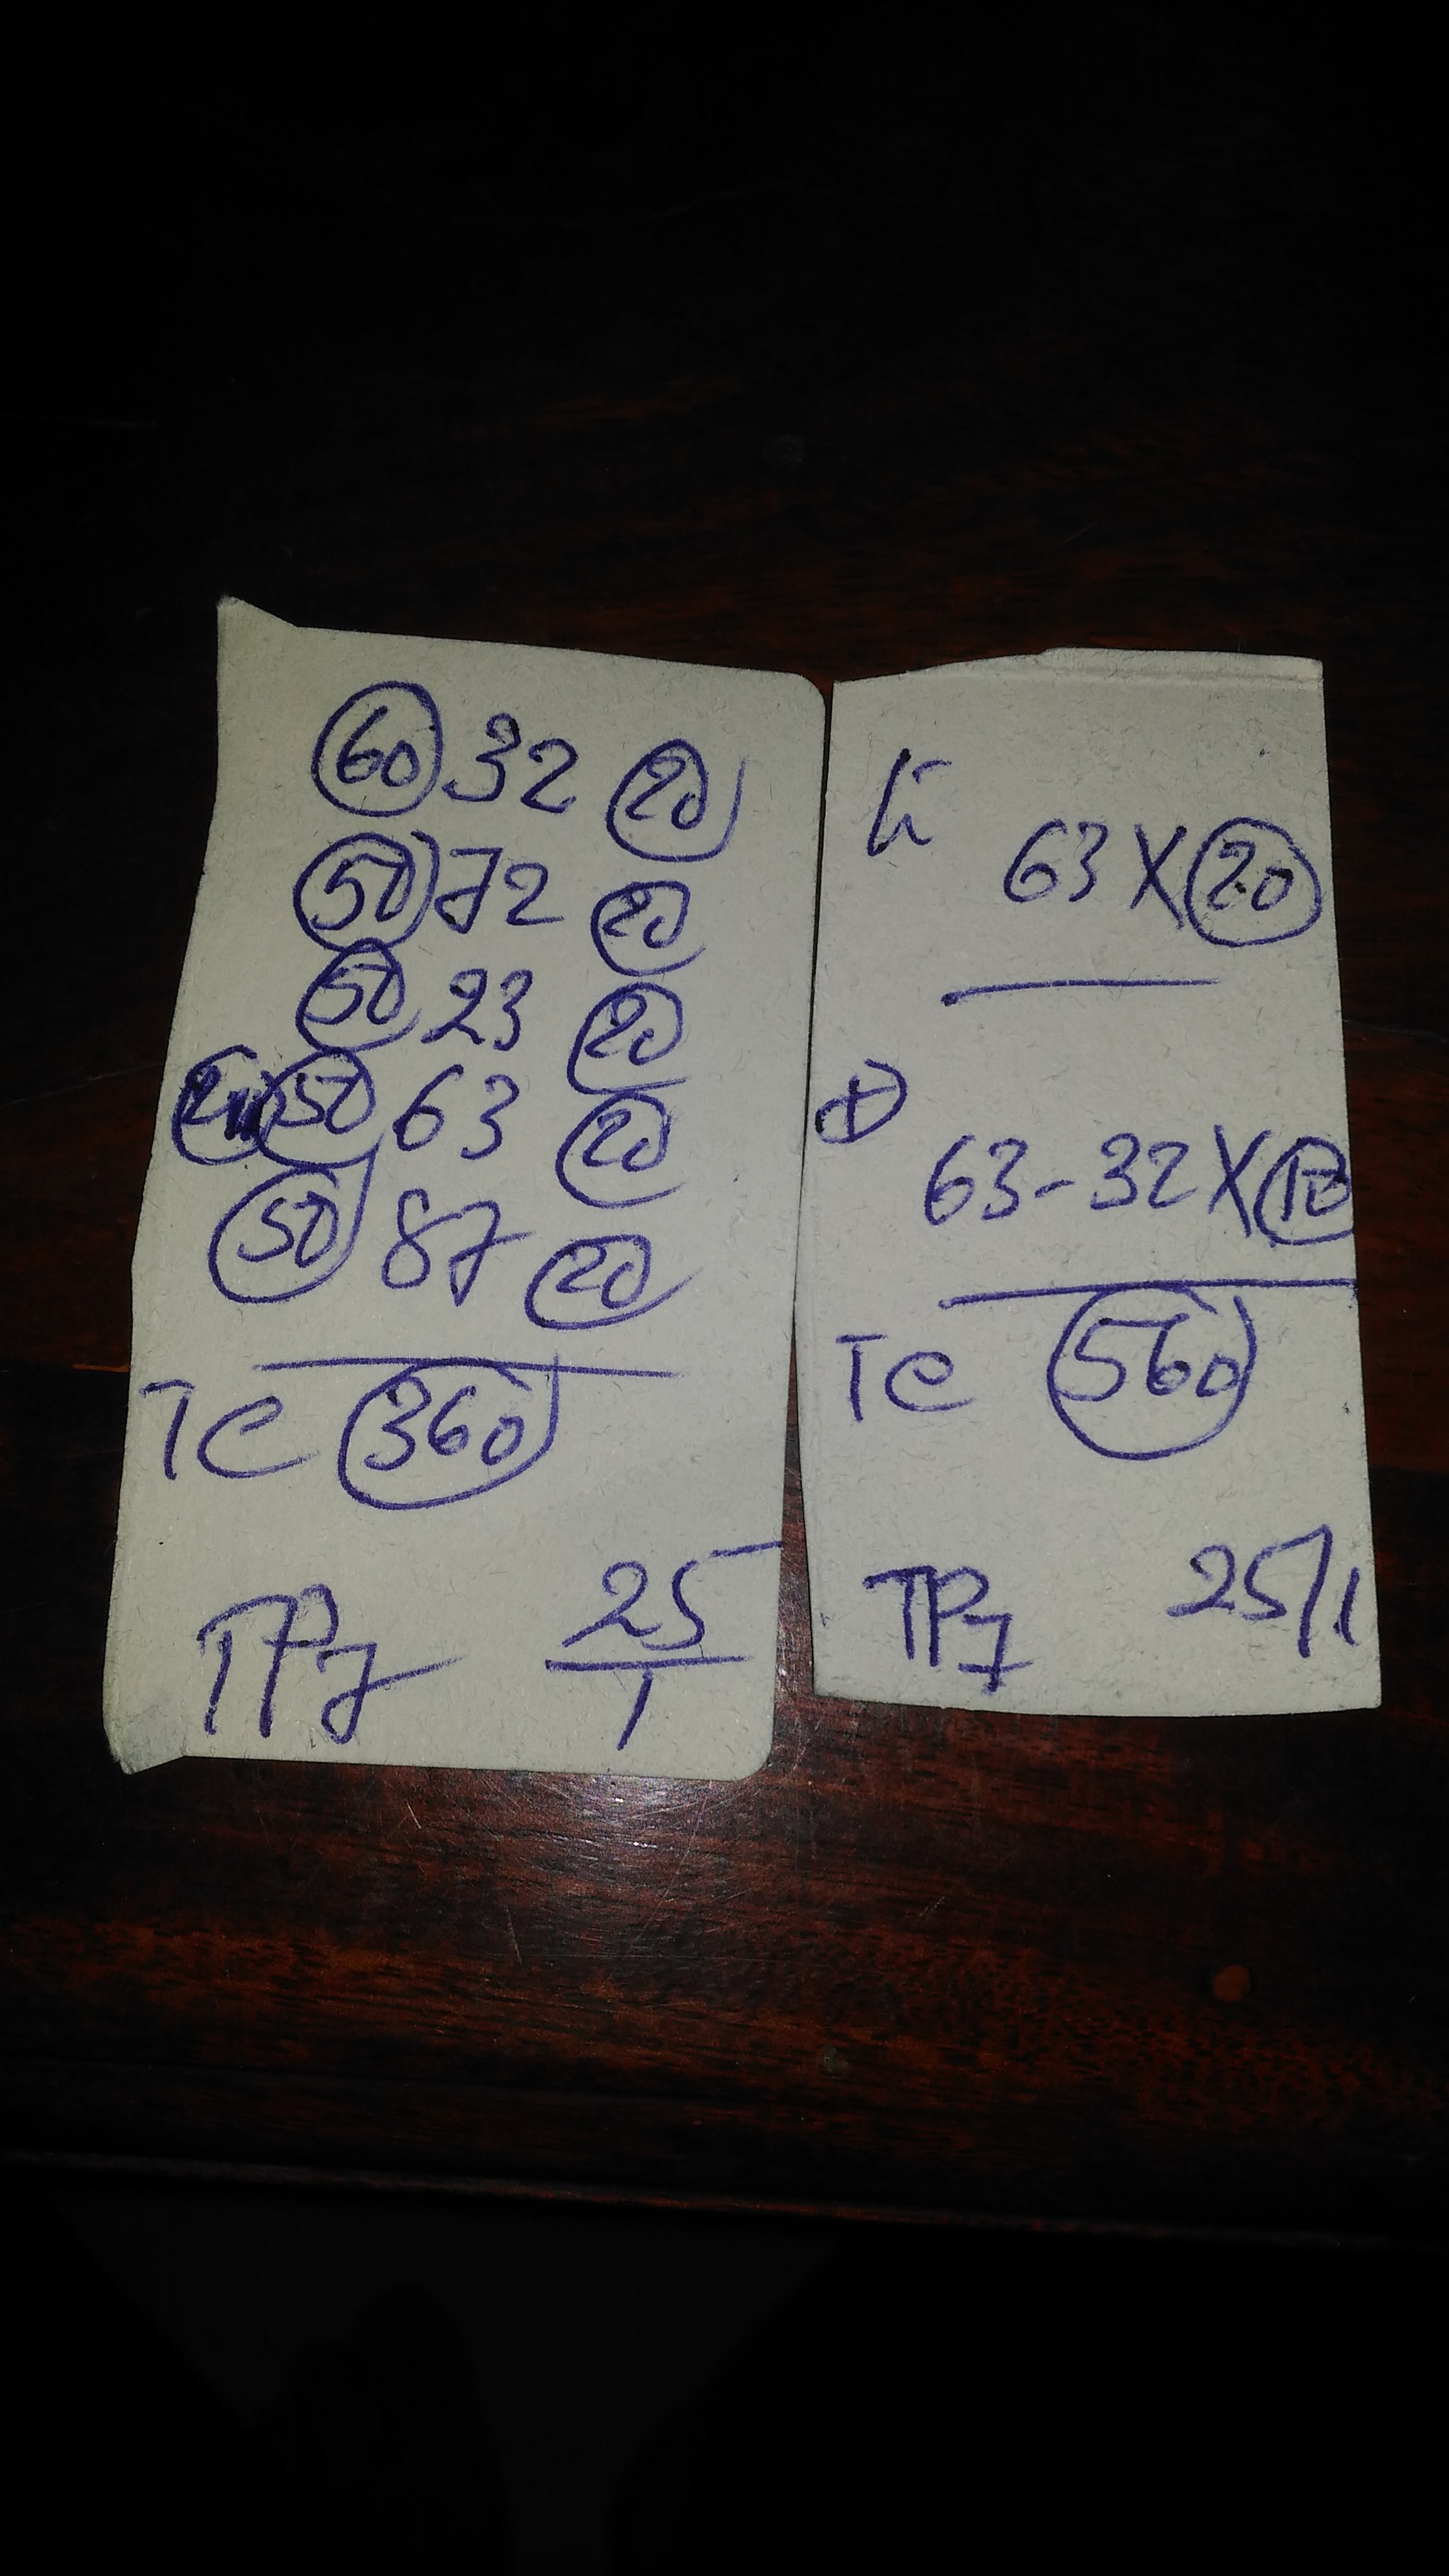 60 32 20
50 72 20
50 23 20
50 63 20
50 87 20
TC 360
TP7 25/1
K
63 X 20
63-32 X 10
TC 560
TP7 25/1